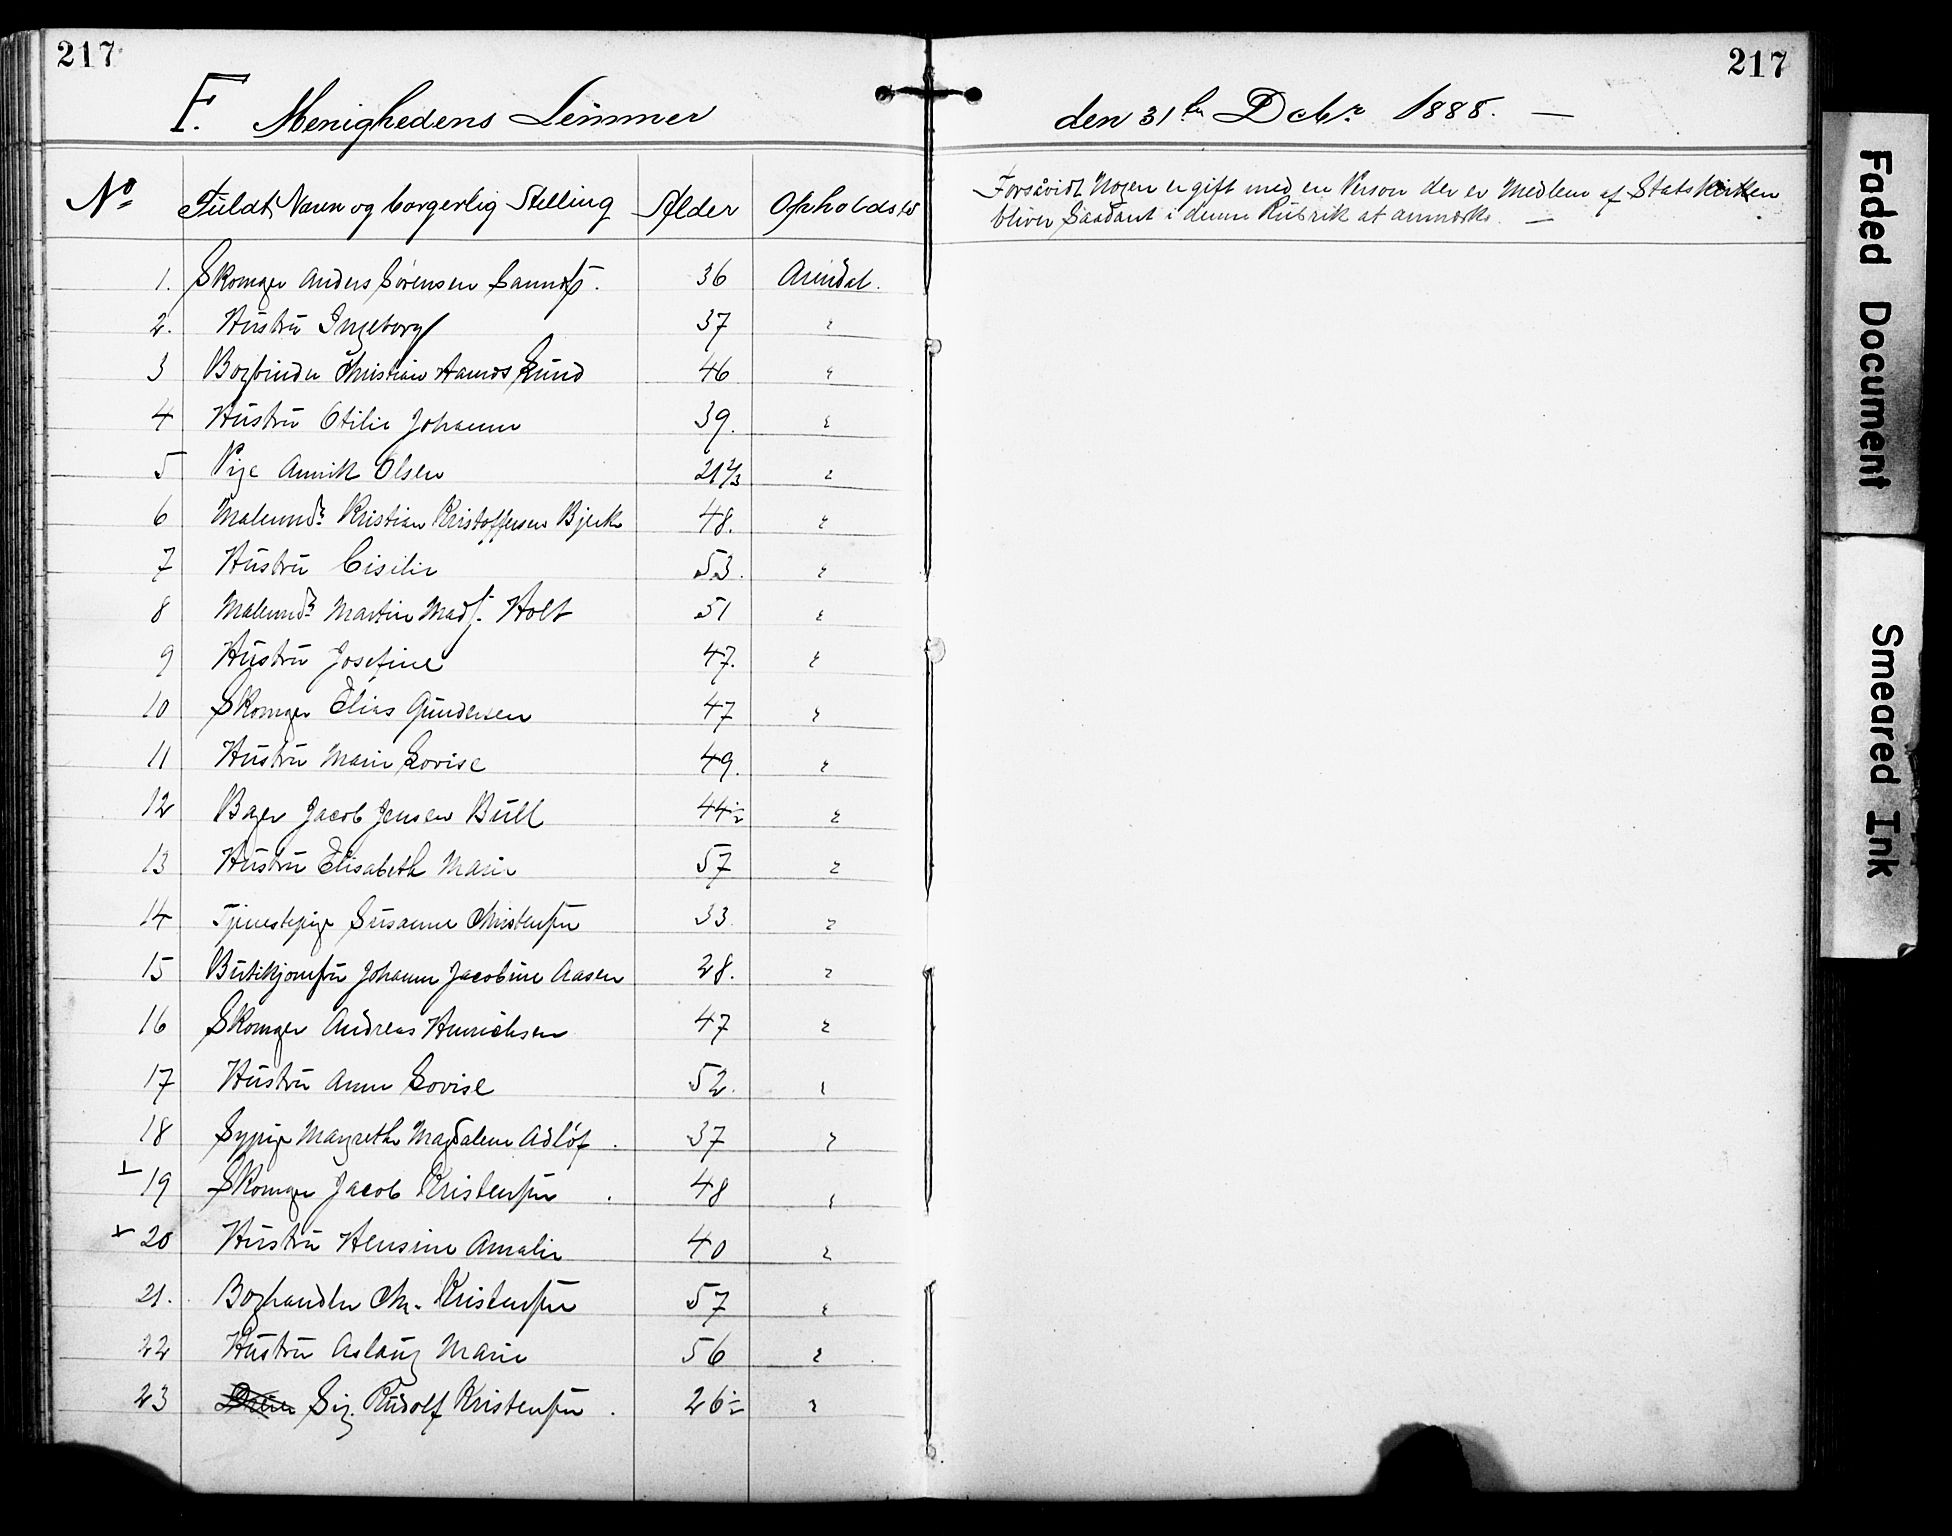 217
217
F. Menighedens Lemmer den 31te Decbr 1888. —
No Fuldt Navn og borgerlig Stilling Alder Opholdsted Forsåvidt Nogen er gift med en Person der er Medlem af Statskirken
bliver Saadant i denne Rubrik at anmærke. —
1. Skomager Anders Sørensen 36 Arendal.
2. Hustru Ingeborg 37 "
3 Bogbinder Christian Aamos Lund 46 "
4 Hustru Otilie Johanne 39. "
5 Pige Annik Olsen 21 2/3 "
6 Malermdr Kristian Kristoffersen Bjerk 48. "
7 Hustru Cisilie 53. "
8 Malermdr Martin Mads. Holt 51 "
9 Hustru Josefine 47. "
10 Skomager Elias Gundersen 47 "
11 Hustru Marie Lovise 49. "
12 Bager Jacob Jensen Bull 44½ "
13 Hustru Elisabeth Marie 57 "
14 Tjenestepige Susanne Christensen 33. "
15 Butikjomfru Johanne Jacobine Aasen 28. "
16 Skomager Andreas Henrichsen 47 "
17 Hustru Anne Lovise 52. "
18 Sypige Margrethe Magdalene Adlöf . 37 "
x 19 Skomager Jacob Kristensen . 48 "
x 20 Hustru Hensine Amalie 40 "
21. Boghandler Chr. Kristensen 57 "
22 Hustru Aslaug Marie 56 "
23 Sig. Rudolf Kristensen . 26½ "
Faded Document
Smeared Ink